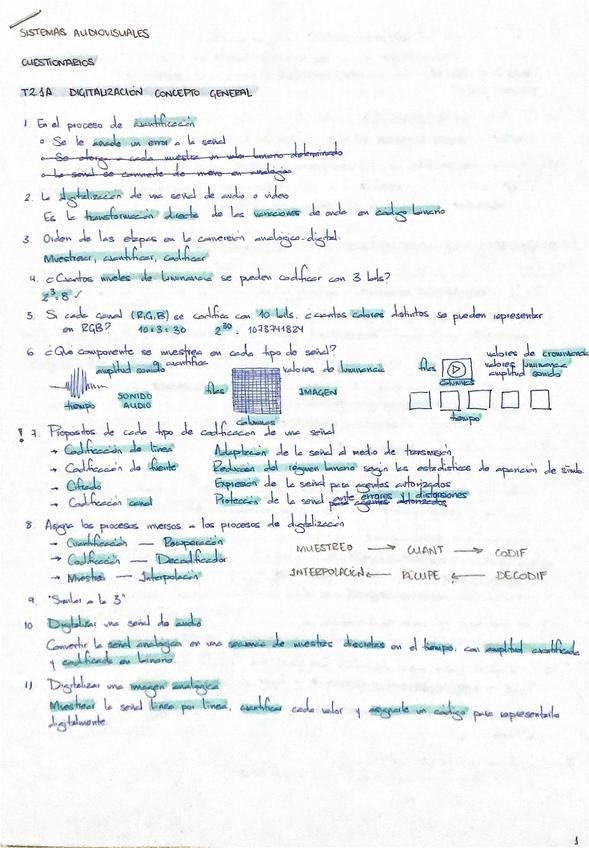 SISTEMAS AUDIOVISUALES
CUESTIONARIOS
T2.1A DIGITALIZACIÓN CONCEPTO GENERAL
1. En el proceso de cuantificación
o Se le añade un error a la señal
o Se otorga a cada muestra un valor binario determinado
o La señal se convierte de nuevo en analógica
2. La digitalización de una señal de audio o video
Es la transformación directa de las variaciones de onda en código binario
3. Orden de las etapas en la conversión analógico-digital.
Muestrear, cuantificar, codificar
4. ¿Cuantos niveles de luminancia se pueden codificar con 3 bits?
2³=8 ✓
5. Si cada canal (R,G,B) se codifica con 10 bits, ¿cuantos colores distintos se pueden representar
en RGB? 10×3=30 2³⁰ = 1073741824
6 ¿Qué componente se muestrea o cuantifica en cada tipo de señal?
amplitud sonido
tiempo
SONIDO
AUDIO
filas
valores de luminancia
IMAGEN
columnas
filas
columnas
valores de crominancia
valores luminancia
amplitud sonido
tiempo
! 7. Propósitos de cada tipo de codificación de una señal
→ Codificación de línea Adaptación de la señal al medio de transmisión
→ Codificación de fuente Reducción del régimen binario según las estadísticas de aparición de símb.
→ Cifrado Expresión de la señal para agentes autorizados
→ Codificación canal Protección de la señal ante errores y distorsiones
para agentes autorizados
8. Asigna los procesos inversos a los procesos de digitalización
→ Cuantificación — Recuperación
→ Codificación — Decodificador
→ Muestreo — Interpolación
MUESTREO → CUANT → CODIF
INTERPOLACIÓN ← RECUPE ← DECODIF
9. "Similar a la 3"
10. Digitalizar una señal de audio
Convertir la señal analógica en una secuencia de muestras discretas en el tiempo, con amplitud cuantificada
y codificada en binario.
11. Digitalizar una imagen analógica
Muestrear la señal línea por línea, cuantificar cada valor y asignarle un código para representarla
digitalmente.
1